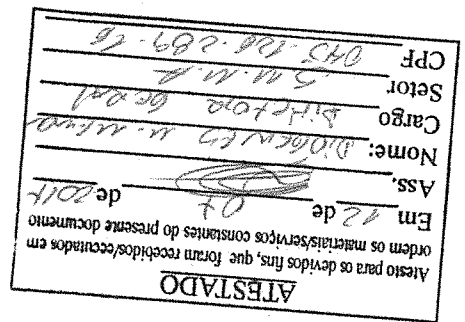 ATESTADO
Atesto para os devidos fins, que foram recebidos/executados em
ordem os materiais/serviços constantes do presente documento
Em 12 de 07 de 2017
Ass.
Nome: Diogenes M.
Cargo Diretor Geral
Setor
CPF 045.126.289-16